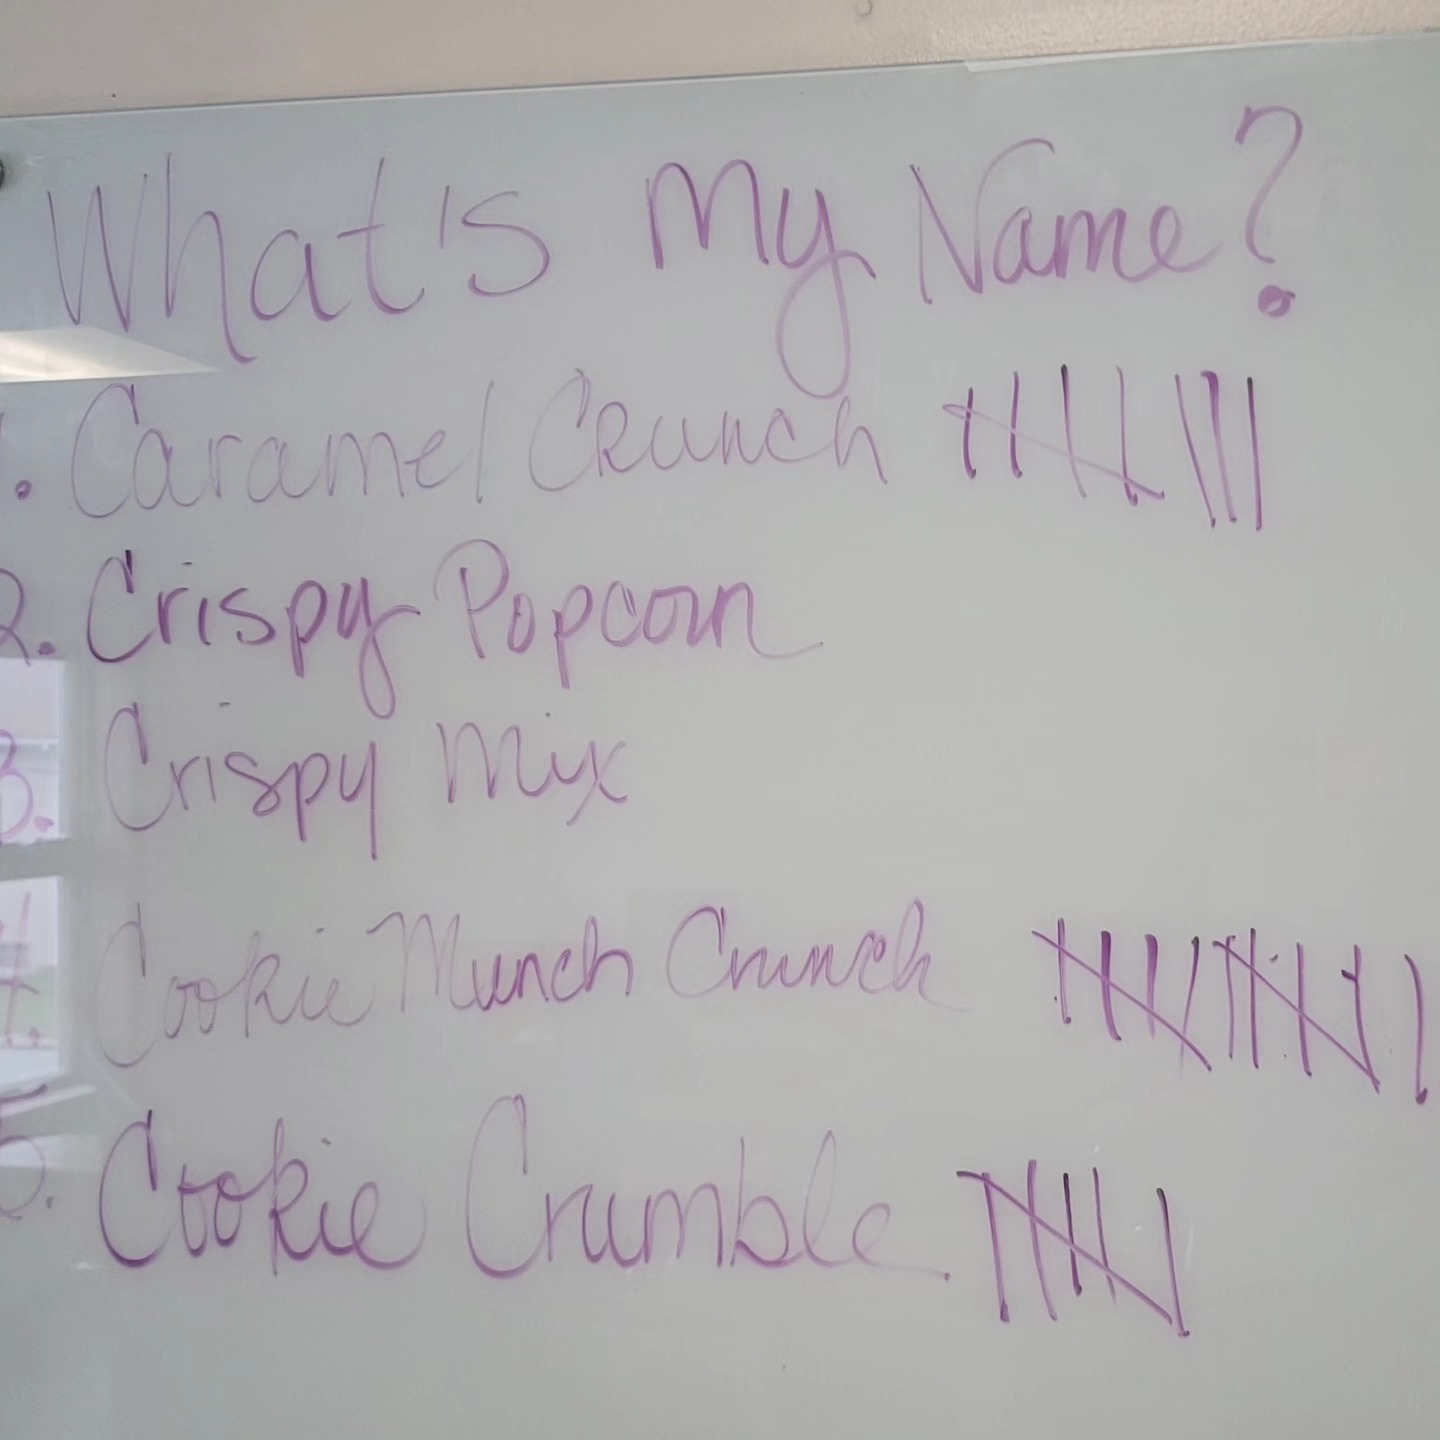 What's My Name?
1. Caramel Crunch
2. Crispy Popcorn
3. Crispy Mix
4. Cookie Munch Crunch
5. Cookie Crumble